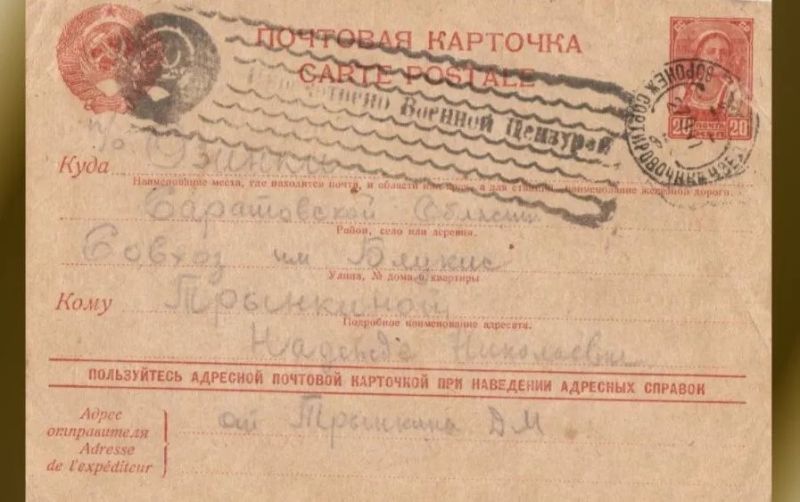 ПОЧТОВАЯ КАРТОЧКА
CARTE POSTALE
Просмотрено Военной Цензурой
ВОРОНЕЖ СОРТИРОВОЧНАЯ
ПОЧТА
20 20
п/о Озинки
Куда
Наименование места, где находится почта, и области или края, а для станции, наименование железной дороги.
Саратовской Области
Район, село или деревня.
Совхоз им Блукис
Улица, № дома и квартиры
Кому Трынкиной
Подробное наименование адресата.
Надежде Николаевне
ПОЛЬЗУЙТЕСЬ АДРЕСНОЙ ПОЧТОВОЙ КАРТОЧКОЙ ПРИ НАВЕДЕНИИ АДРЕСНЫХ СПРАВОК
Адрес
отправителя
Adresse
de l'expéditeur
от Трынкина Д М